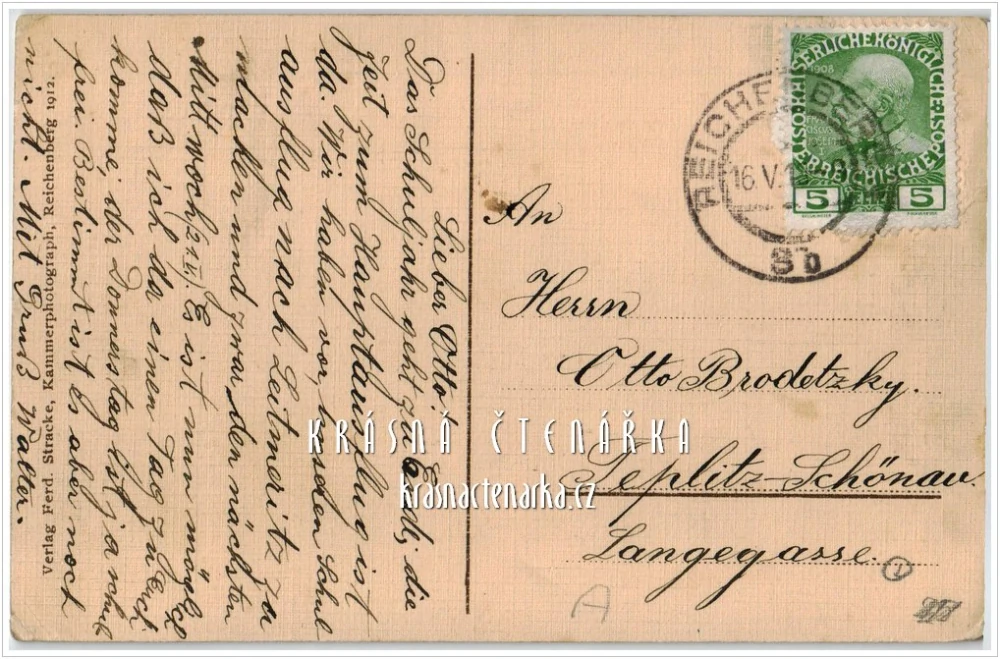 Lieber Otto!
Das Schuljahr geht zu Ende, die
Zeit zum Hauptausflug ist
da. Wir haben vor, besden Schul
ausflug nach Leitmeritz zu
machen und zwar den nächsten
Mittwoch (21./V.). Es ist nun möglich
daß ich da einen Tag zu Euch
komme, der Donnerstag ist ja schul
frei. Bestimmt ist es aber noch
nicht. Mit Gruß Walter.
Verlag Ferd. Stracke, Kammerphotograph, Reichenberg 1912.
An
Herrn
Otto Brodetzky.
Teplitz-Schönau.
Langegasse.
1
A
KAISERLICHE KÖNIGLICHE
ÖSTERREICHISCHE POST
1908
5 HELLER 5
REICHENBERG
16.V.
8b
KRÁSNÁ ČTENÁŘKA
krasnactenarka.cz